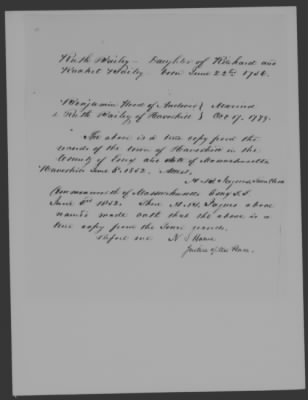 Ruth Bailey - Daughter of Richard and
Rachel Bailey. born June 22nd 1756.
Benjamin Hood of Andover } Married
& Ruth Bailey of Haverhill } Oct 17. 1779.
The above is a true copy from the
records of the town of Haverhill in the
County of Essex and state of Massachusetts
Haverhill June 5, 1852. Attest.
Town Clerk
Commonwealth of Massachusetts Essex SS
June 5th 1852. Then above
named made oath that the above is a
true copy from the Town records.
Before me N. S. Howe
Justice of the Peace.